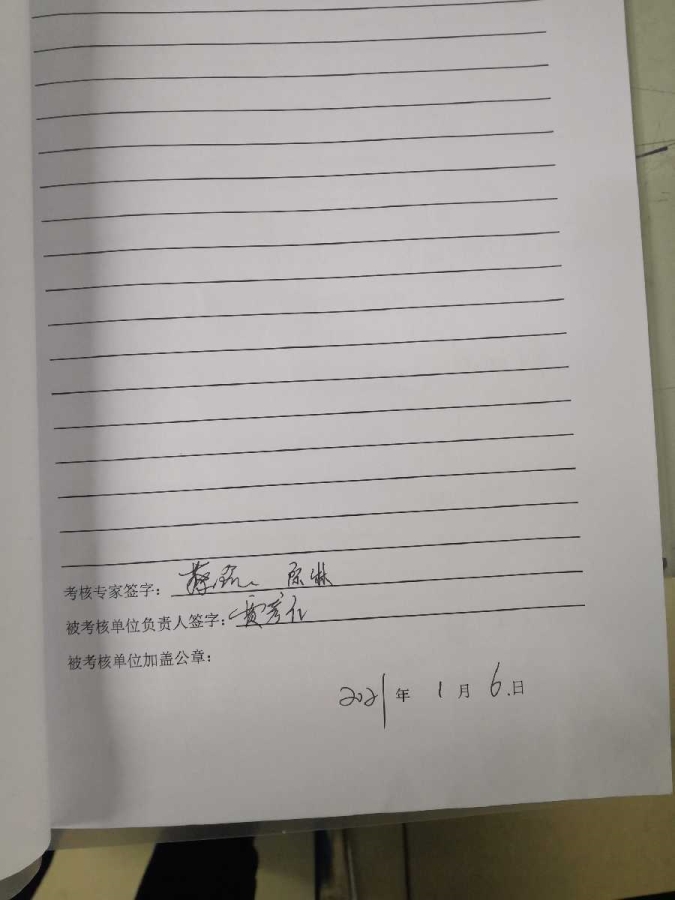 考核专家签字：
被考核单位负责人签字：
被考核单位加盖公章：
2021年1月6日